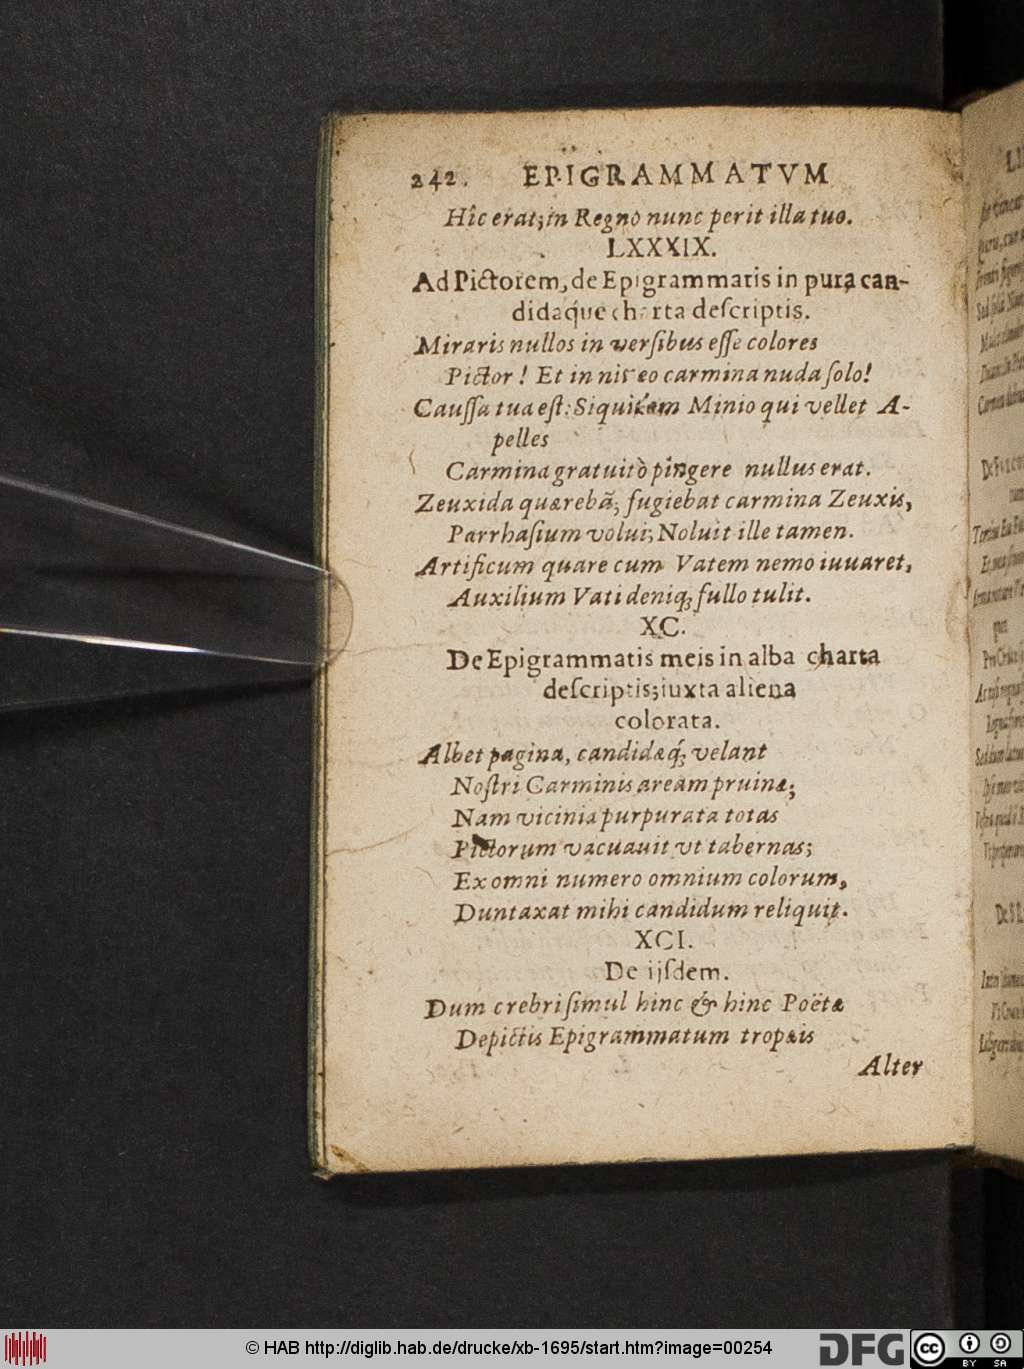 242. EPIGRAMMATVM
Hîc erat; in Regno nunc perit illa tuo.
LXXXIX.
Ad Pictorem, de Epigrammatis in pura can-
didaq́ue charta deſcriptis.
Miraris nullos in verſibus eſſe colores
Pictor! Et in niveo carmina nuda ſolo!
Cauſſa tua eſt: Siquidem Minio qui vellet A-
pelles
Carmina gratuitò pingere nullus erat.
Zeuxida quærebã; fugiebat carmina Zeuxis,
Parrhaſium volui; Noluit ille tamen.
Artificum quare cum Vatem nemo iuuaret,
Auxilium Vati deniq; fullo tulit.
XC.
De Epigrammatis meis in alba charta
deſcriptis; iuxta aliena
colorata.
Albet pagina, candidæq́; velant
Noſtri Carminis aream pruinæ;
Nam vicinia purpurata totas
Pictorum vacuauit vt tabernas;
Ex omni numero omnium colorum,
Duntaxat mihi candidum reliquit.
XCI.
De ijſdem.
Dum crebri ſimul hinc & hinc Poëtæ
Depictis Epigrammatum tropæis
Alter
© HAB http://diglib.hab.de/drucke/xb-1695/start.htm?image=00254
DFG
cc
BY SA